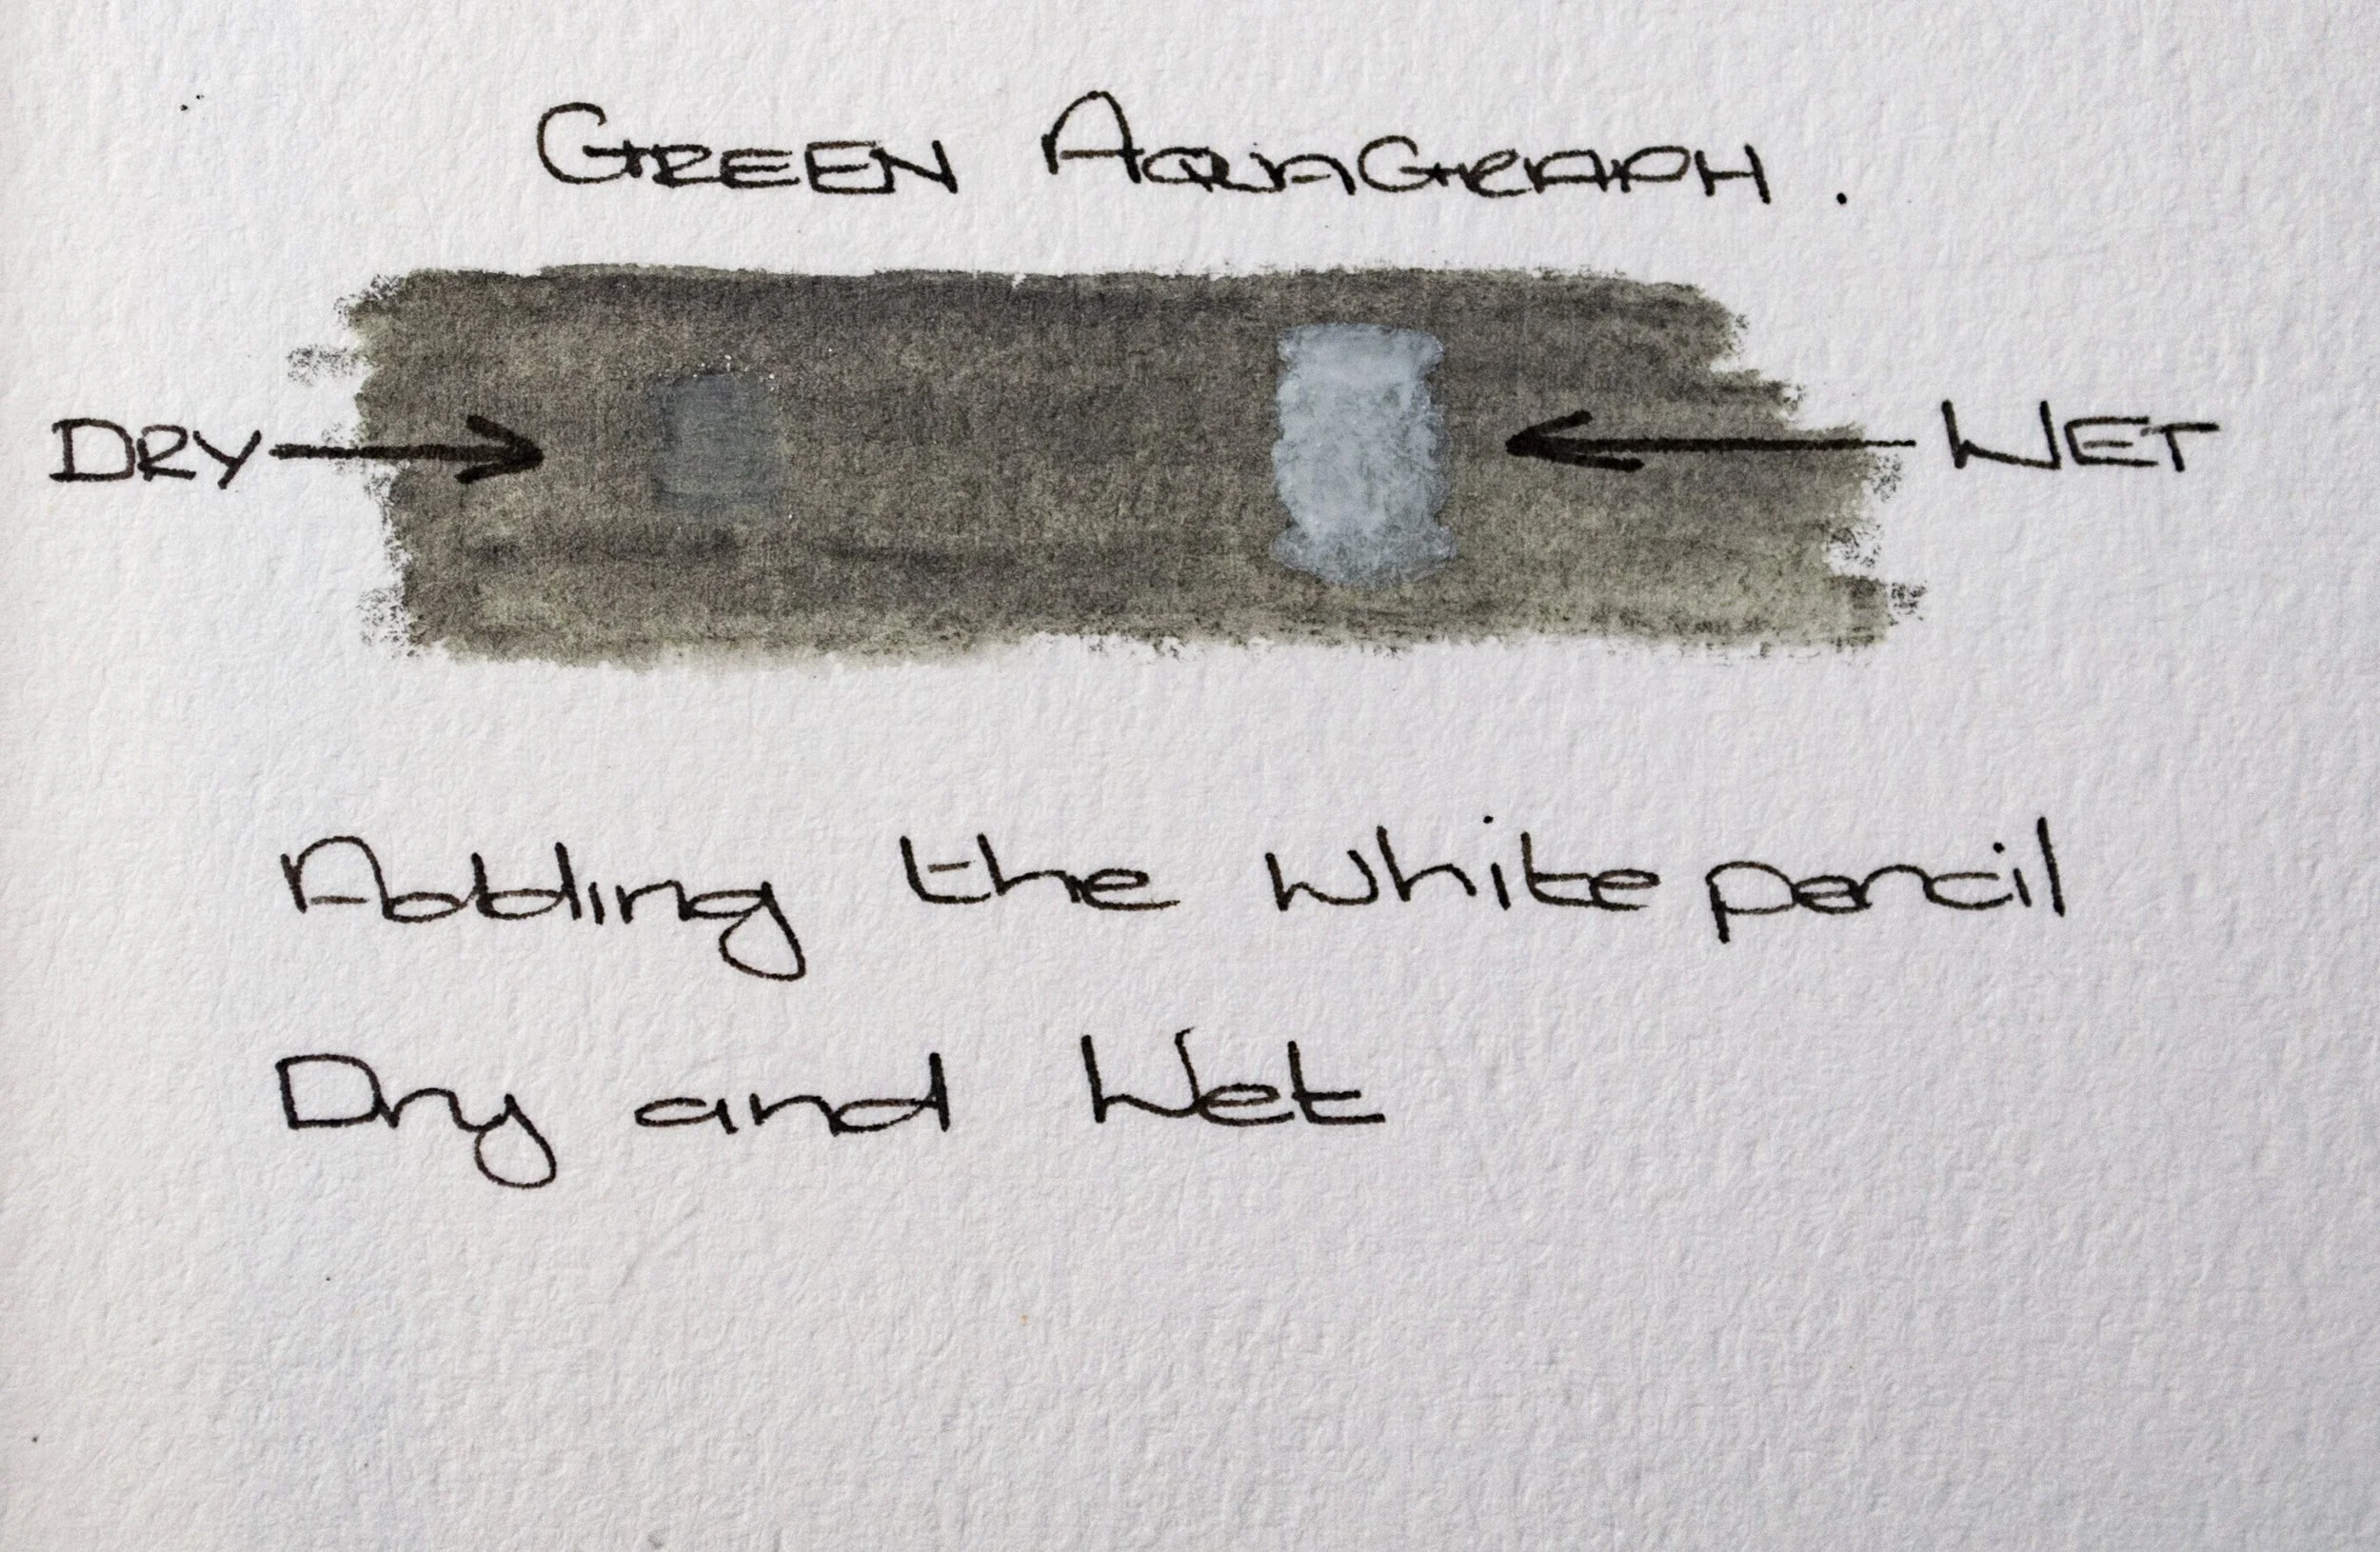 GREEN AQUAGRAPH.
DRY → ← WET
Adding the white pencil
Dry and Wet